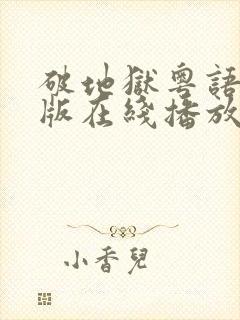 破地獄粵語
版在綫播放
小香兒